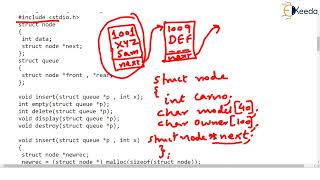 Ekeeda
#include <stdio.h>
struct node
{
int data;
struct node *next;
};
struct queue
{
struct node *front , *rear;
};
void insert(struct queue *p , int x);
int empty(struct queue *p);
int delete(struct queue *p);
void display(struct queue *p);
void destroy(struct queue *p);
void insert(struct queue *p , int x)
{
struct node *newrec;
newrec = (struct node *) malloc(sizeof(struct node));
1001
XYZ
Sam
next
1009
DEF
next
struct node
{
int carno;
char model[40];
char owner[100];
struct node *next;
};